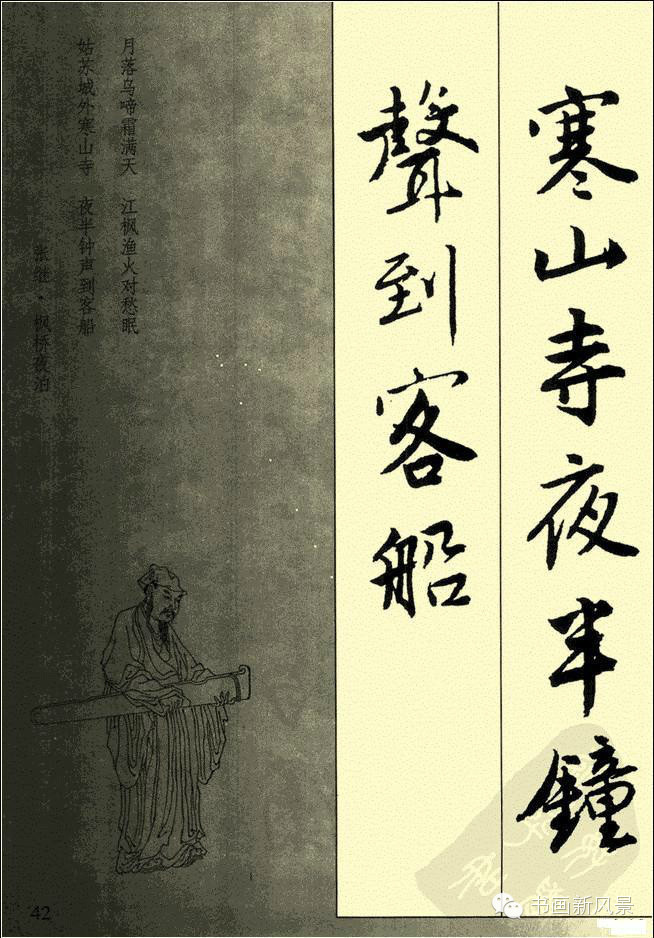 寒山寺夜半鐘
聲到客船
月落乌啼霜满天 江枫渔火对愁眠
姑苏城外寒山寺 夜半钟声到客船
张继·枫桥夜泊
42
书画新风景